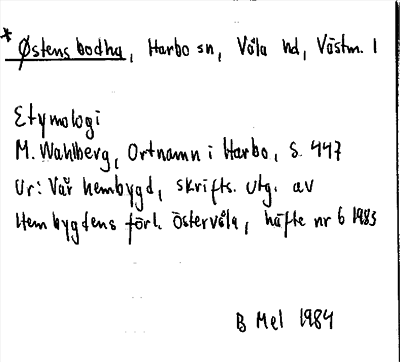 * Østens bodha, Harbo sn, Våla hd, Västm. l
Etymologi
M. Wahlberg, Ortnamn i Harbo, s. 447
Ur: Vår hembygd, skrifts. utg. av
Hembygdens förl. Östervåla, häfte nr 6 1983
B Mel 1984